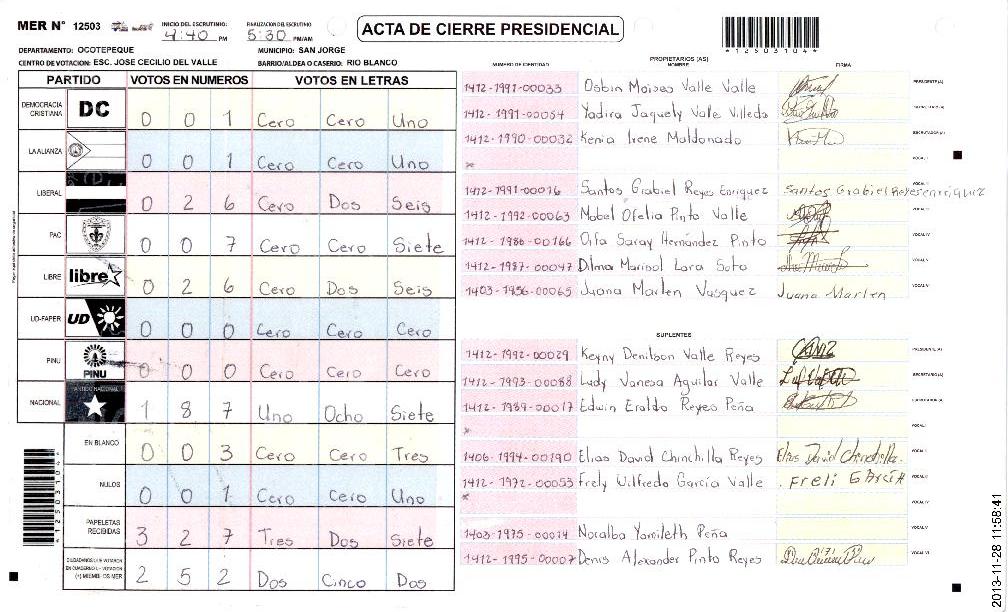 MER N° 12503
INICIO DEL ESCRUTINIO: 4:40 PM
FINALIZACION DEL ESCRUTINIO 5:30 PM/AM
ACTA DE CIERRE PRESIDENCIAL
*12503104*
DEPARTAMENTO: OCOTEPEQUE MUNICIPIO: SAN JORGE
CENTRO DE VOTACION: ESC. JOSE CECILIO DEL VALLE BARRIO/ALDEA O CASERIO: RIO BLANCO
PARTIDO VOTOS EN NUMEROS VOTOS EN LETRAS
DEMOCRACIA CRISTIANA DC 0 0 1 Cero Cero Uno
LA ALIANZA 0 0 1 Cero Cero Uno
LIBERAL 0 2 6 Cero Dos Seis
PAC 0 0 7 Cero Cero Siete
LIBRE libre 0 2 6 Cero Dos Seis
UD-FAPER UD 0 0 0 Cero Cero Cero
PINU PINU 0 0 0 Cero Cero Cero
NACIONAL PARTIDO NACIONAL 1 8 7 Uno Ocho Siete
EN BLANCO 0 0 3 Cero Cero Tres
NULOS 0 0 1 Cero Cero Uno
PAPELETAS RECIBIDAS 3 2 7 Tres Dos Siete
CIUDADANOS QUE VOTARON EN CUADERNO DE VOTACION (+) MIEMBROS MER 2 5 2 Dos Cinco Dos
*12503104*
PROPIETARIOS (AS)
NUMERO DE IDENTIDAD NOMBRE FIRMA
1412-1991-00033 Osbin Moises Valle Valle PRESIDENTE(A)
1412-1991-00054 Yadira Jaquely Valle Villeda SECRETARIO(A)
1412-1990-00032 Kenia Irene Maldonado ESCRUTADOR(A)
* VOCAL I
1412-1991-00016 Santos Grabiel Reyes Enriquez Santos Grabiel Reyes enriquez VOCAL II
1412-1992-00063 Mabel Ofelia Pinto Valle VOCAL III
1412-1986-00166 Orfa Saray Hernández Pinto VOCAL IV
1412-1987-00047 Dilma Marisol Lara Soto VOCAL V
1403-1956-00065 Juana Marlen Vasquez Juana Marlen VOCAL VI
SUPLENTES
1412-1992-00029 Keyny Denilson Valle Reyes PRESIDENTE(A)
1412-1993-00088 Ludy Vanesa Aguilar Valle SECRETARIO(A)
1412-1989-00017 Edwin Eraldo Reyes Peña ESCRUTADOR(A)
* VOCAL I
1406-1994-00190 Elias David Chinchilla Reyes Elias David Chinchilla VOCAL II
1412-1972-00053 Frely Wilfredo García Valle Freli GARCIA VOCAL III
* VOCAL IV
1403-1975-00014 Noralba Yamileth Peña VOCAL V
1412-1995-00007 Denis Alexander Pinto Reyes VOCAL VI
2013-11-28 11:58:41